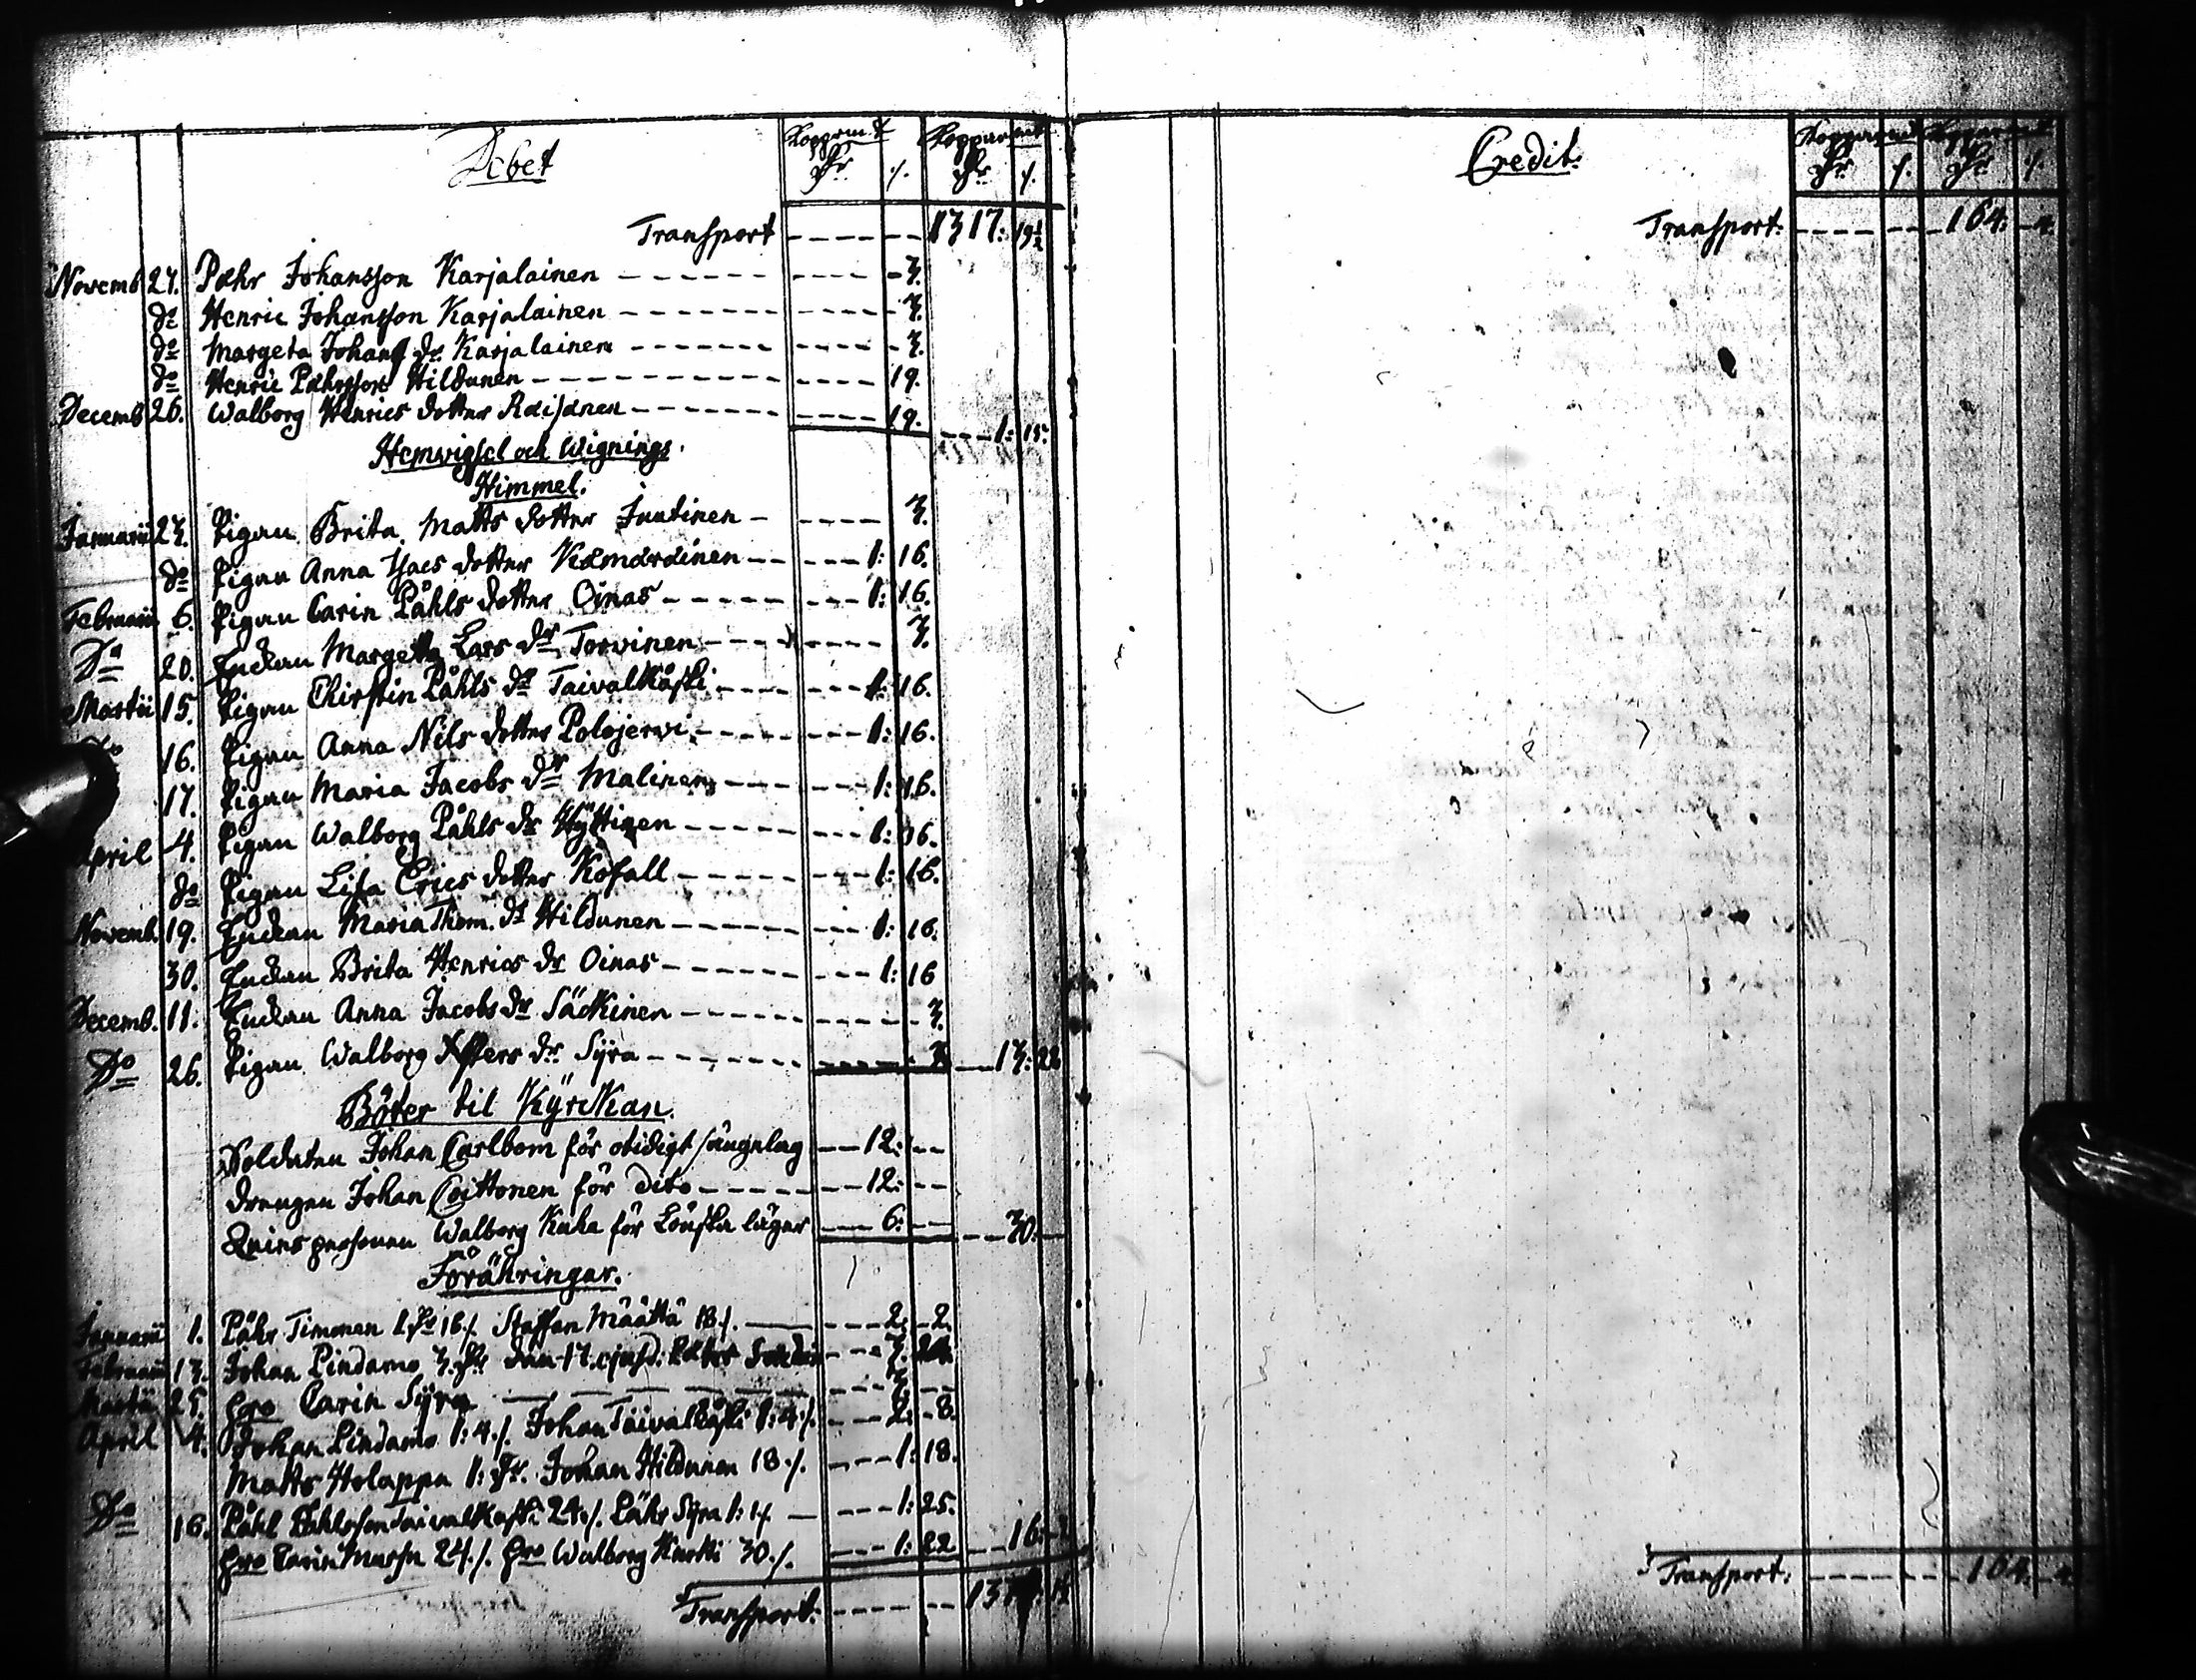 Debet Kopparmt Kopparmt
Dr. /. Dr. /.
Transport ---- -- 1317: 19½
Novemb 27. Påhr Johansson Karjalainen ---- - 3.
do Henric Johansson Karjalainen ---- 3.
do Margeta Johans dr. Karjalainen ---- 3.
do Henric Påhrsson Hildunen ---- 19.
Decemb 26. Walborg Henrics dotter Räisänen ---- 19. --- 1: 15.
Hemwigsel och Wignings
Himmel.
Januarii 27. Pigan Brita Matts dotter Juutinen ---- 3.
do Pigan Anna Isacs dotter Kämäräinen --- 1: 16.
Februarii 6. Pigan Carin Påhls dotter Oinas --- 1: 16.
Do 20. Enckan Margetta Lars dr Torvinen ---- 3.
Martii 15. Pigan Chirstin Påhls dr Taivalkåski --- 1: 16.
Do 16. Pigan Anna Nils dotter Polojerwi --- 1: 16.
17. Pigan Maria Jacobs dr Malinen --- 1: 16.
April 4. Pigan Walborg Påhls dr Hyttinen --- 1: 16.
do Pigan Lisa Erics dotter Kofall --- 1: 16.
Novemb. 19. Enckan Maria Thom. dr Hildunen --- 1: 16.
30. Enckan Brita Henrics dr Oinas --- 1: 16
Decemb. 11. Enckan Anna Jacobs dr Säckinen ---- 3.
Do 26. Pigan Walborg dr. Syra ---- 3 -- 13: 22
Böter til Kyrckan.
Soldaten Johan Carlbom för otidigt sängelag -- 12: --
Drengen Johan Coittonen för dito -- 12: --
Qvinspersonen Walborg Kuha för Löuska läger -- 6: -- -- 30: -
Förähringar.
Januarii 1. Påhr Timonen 1 Dr 16 /. Staffan Määttä 18 /. --- 2: 2.
Februarii 13. Johan Lindamo 3. Dr den 17. ejusd. --- 3. 24.
Martii 25. hro Carin Syra --- 3. --
April 4. Johan Lindamo 1: 4 /. Johan Taivalkåski 1: 4 /. --- 2: 8.
Matts Holappa 1: Dr. Johan Hildunen 18 /. --- 1: 18.
Do 16. Påhl Påhlsson Taivalkaski 24 /. Påhr Syra 1: 1 /. --- 1: 25.
hro Carin 24 /. hro Walborg Karki 30 /. --- 1: 22 -- 16:
Transport: ---- --
Credit: Kopparmt Kopparmt
Dr. /. Dr. /.
Transport: ---- -- 164: 4.
Transport: ---- -- 164: 4.